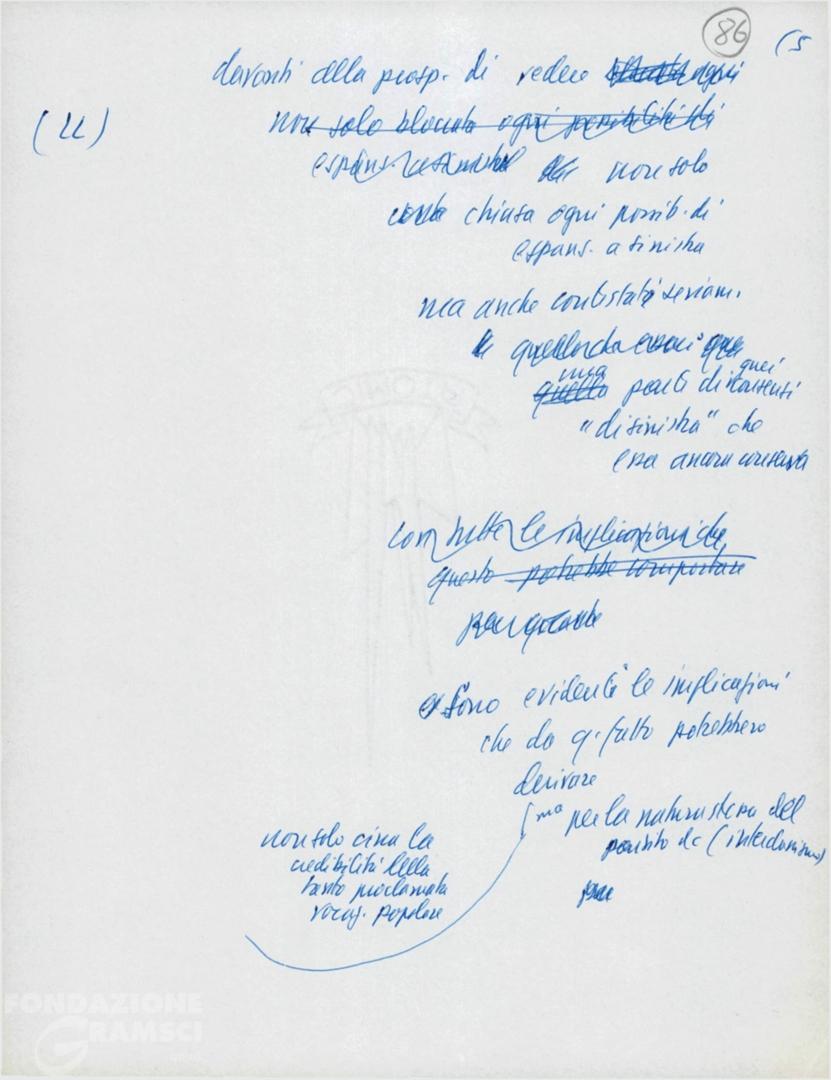 86
(5
davanti alla prosp. di vedere ogni
(22)
non solo bloccata ogni possibilità di
espans. a sinistra non solo
chiusa ogni possib. di
espans. a sinistra
ma anche contestati seriam.
quei
ma
quella punti di consensi
"di sinistra" che
essa ancora conserva
con tutte le implicazioni che
questo potrebbe comportare
e sono evidenti le implicazioni
che da q. fatto potrebbero
derivare
non solo circa la
credibilità della
tanto proclamata
vocaz. popolare
ma per la natura stessa del
partito dc (interclassismo)
FONDAZIONE
GRAMSCI